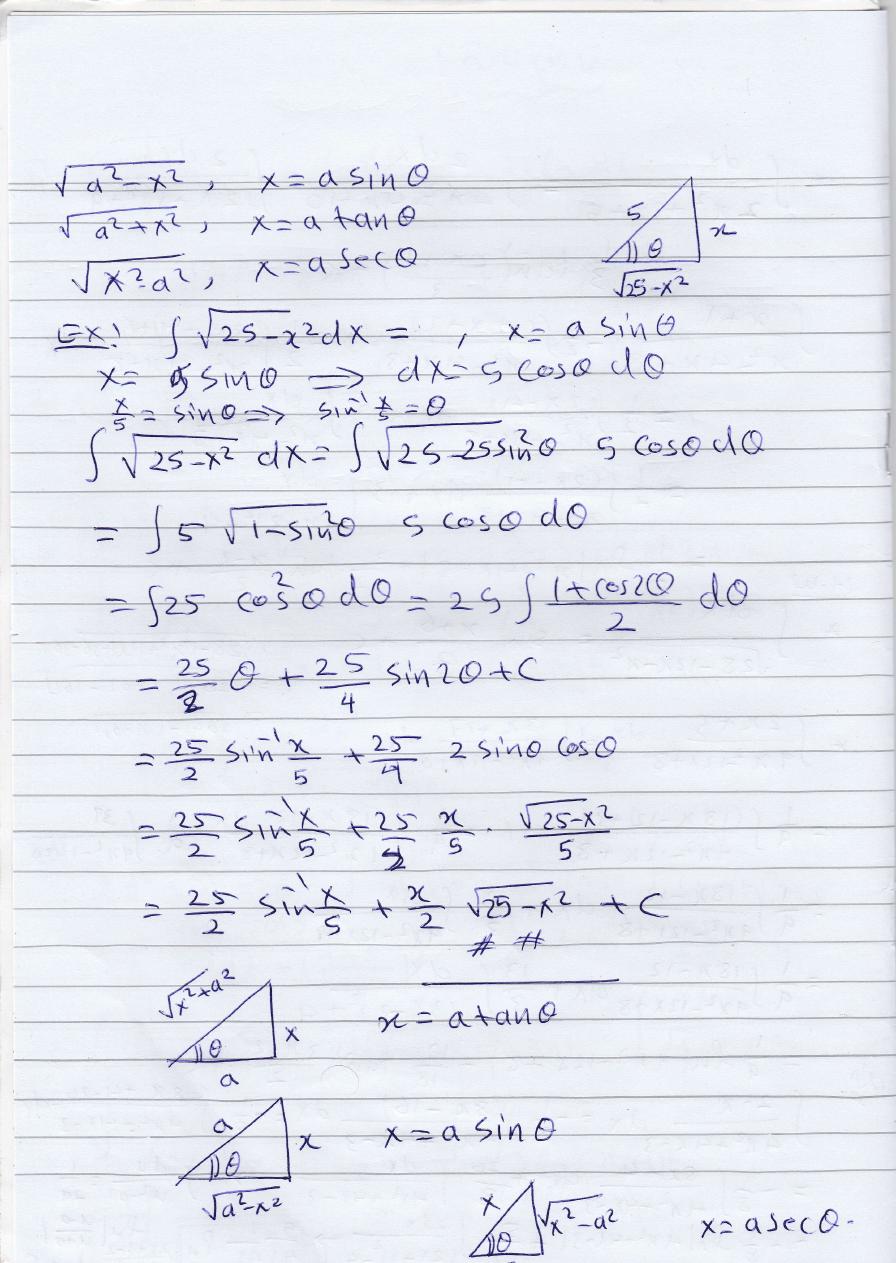 √(a²-x²) , x = a sin θ
√(a²+x²) , x = a tan θ
√(x²-a²) , x = a sec θ
5 x θ √(25-x²)
Ex! ∫ √(25-x²) dx = , x = a sin θ
x = 5 sin θ ⟹ dx = 5 cos θ dθ
x/5 = sin θ ⟹ sin⁻¹ x/5 = θ
∫ √(25-x²) dx = ∫ √(25-25 sin²θ) 5 cos θ dθ
= ∫ 5 √(1-sin²θ) 5 cos θ dθ
= ∫ 25 cos²θ dθ = 25 ∫ (1+cos2θ)/2 dθ
= 25/2 θ + 25/4 sin 2θ + C
= 25/2 sin⁻¹ x/5 + 25/4 2 sin θ cos θ
= 25/2 sin⁻¹ x/5 + 25/2 x/5 · √(25-x²)/5
= 25/2 sin⁻¹ x/5 + x/2 √(25-x²) + C
# #
√(x²+a²) x θ a
x = a tan θ
a x θ √(a²-x²)
x = a sin θ
x √(x²-a²) θ
x = a sec θ.